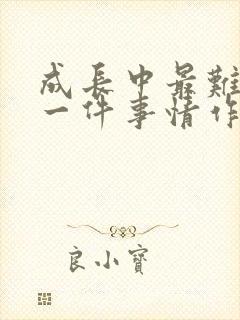 成長中最難
一件事情作
良小寶